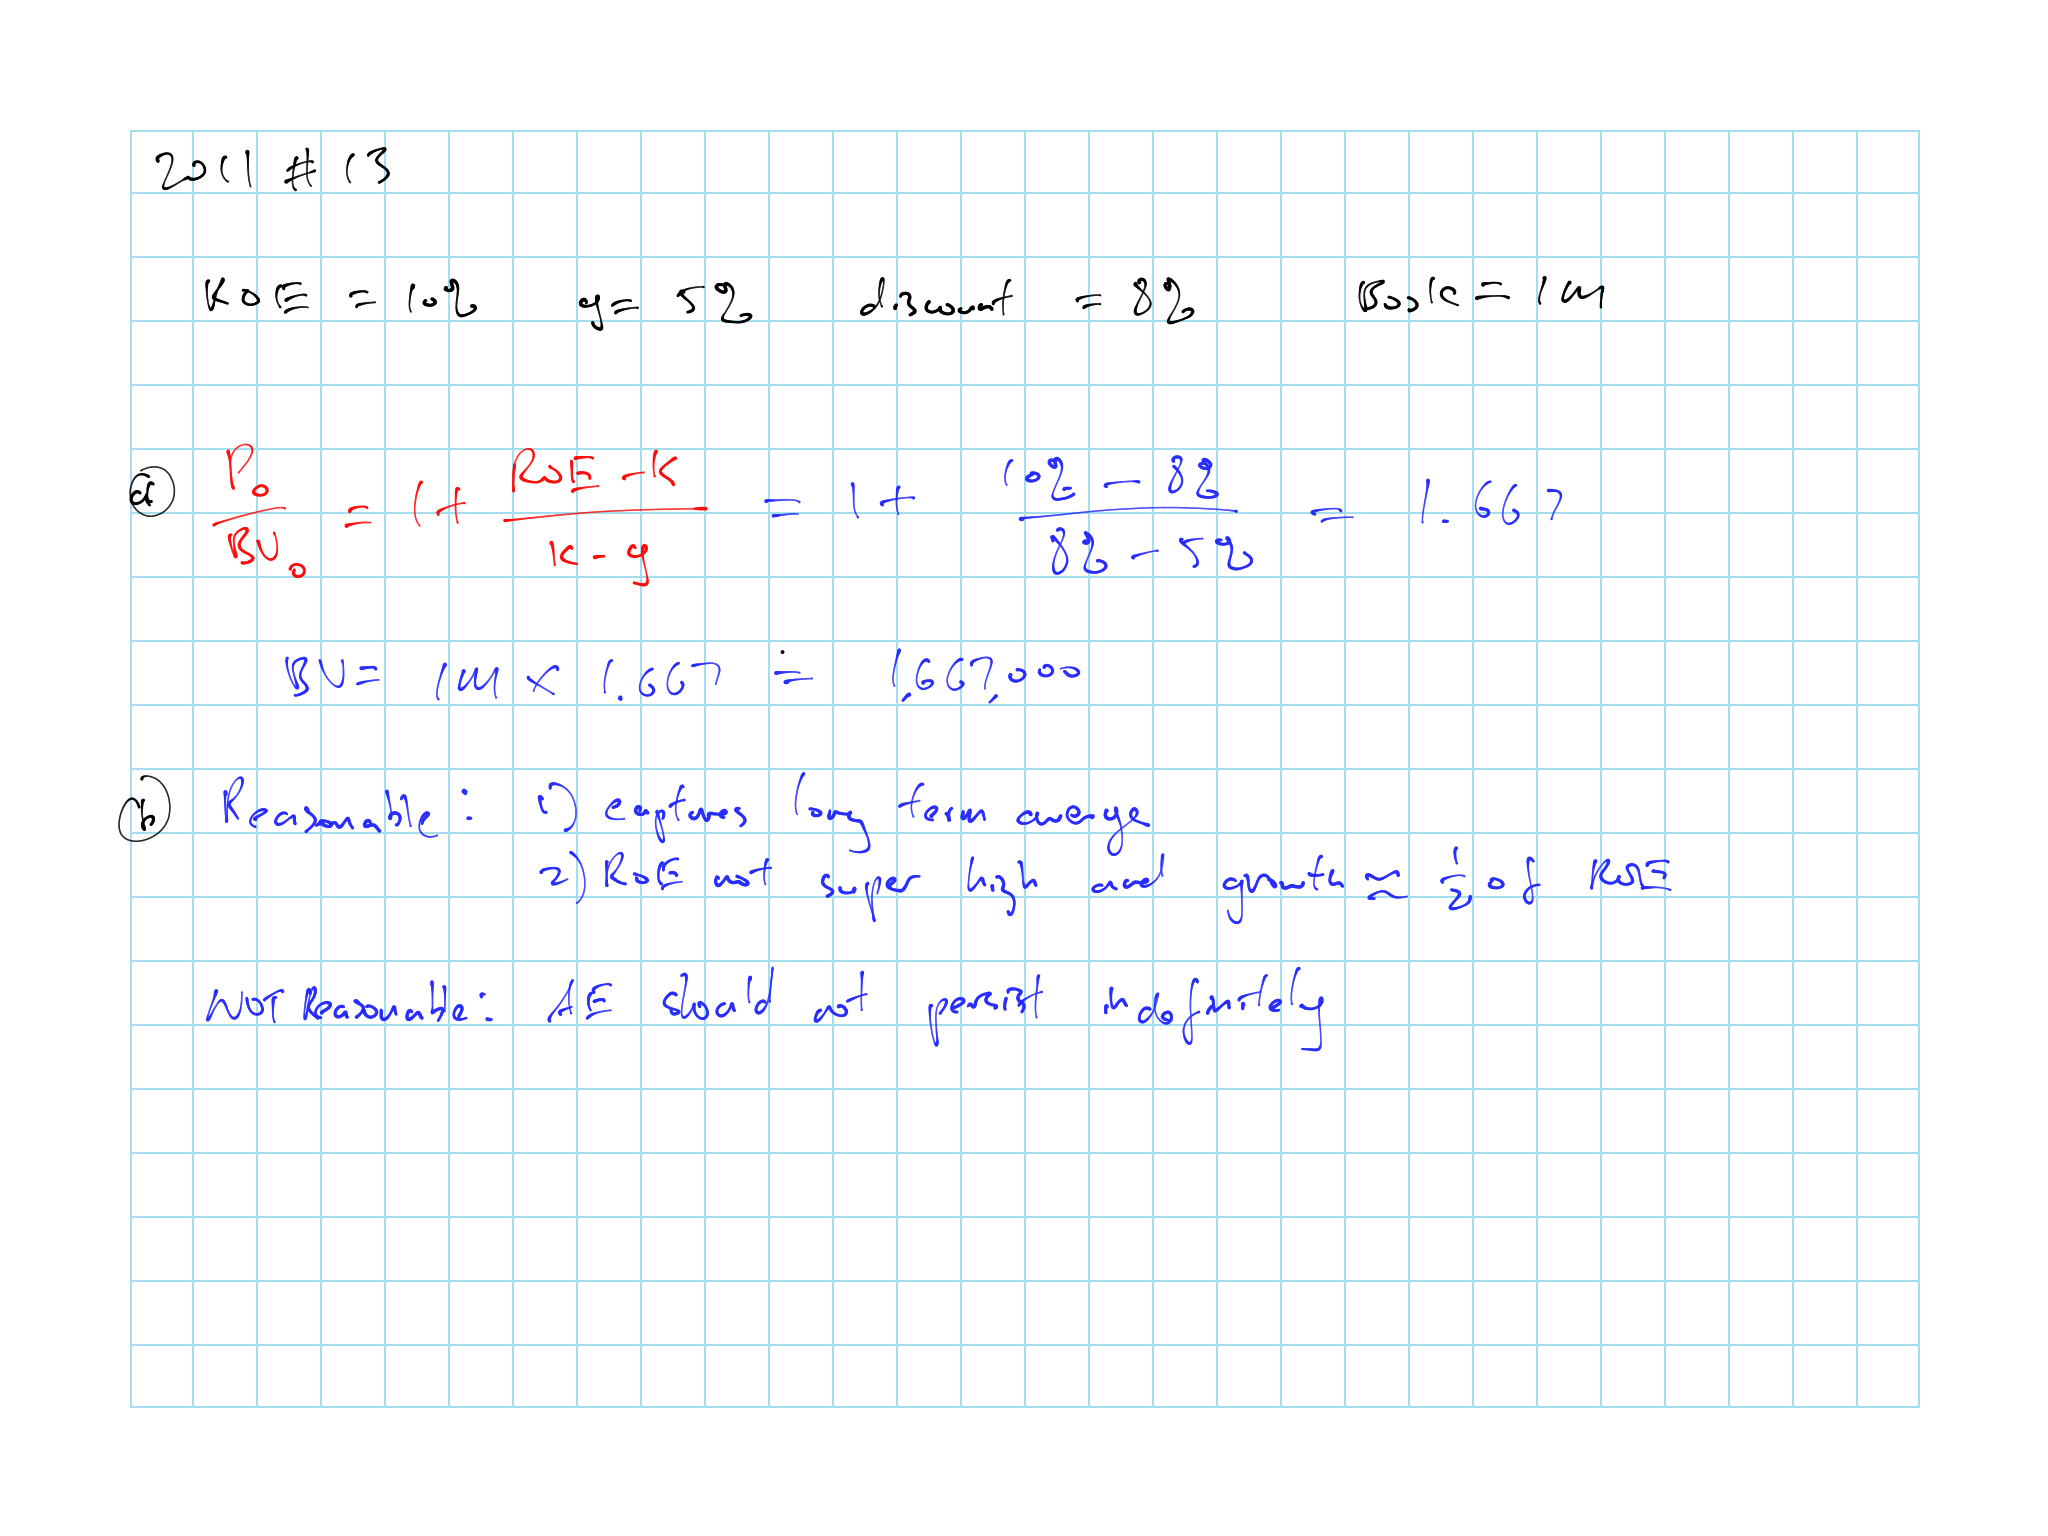 2011 # 13
ROE = 10% g = 5% discount = 8% Book = 1M
(a) P₀/BV₀ = 1 + (ROE - k)/(k - g) = 1 + (10% - 8%)/(8% - 5%) = 1.667
BV = 1M × 1.667 = 1,667,000
(b) Reasonable: 1) captures long term average
2) ROE not super high and growth ≈ 1/2 of ROE
NOT Reasonable: AE should not persist indefinitely